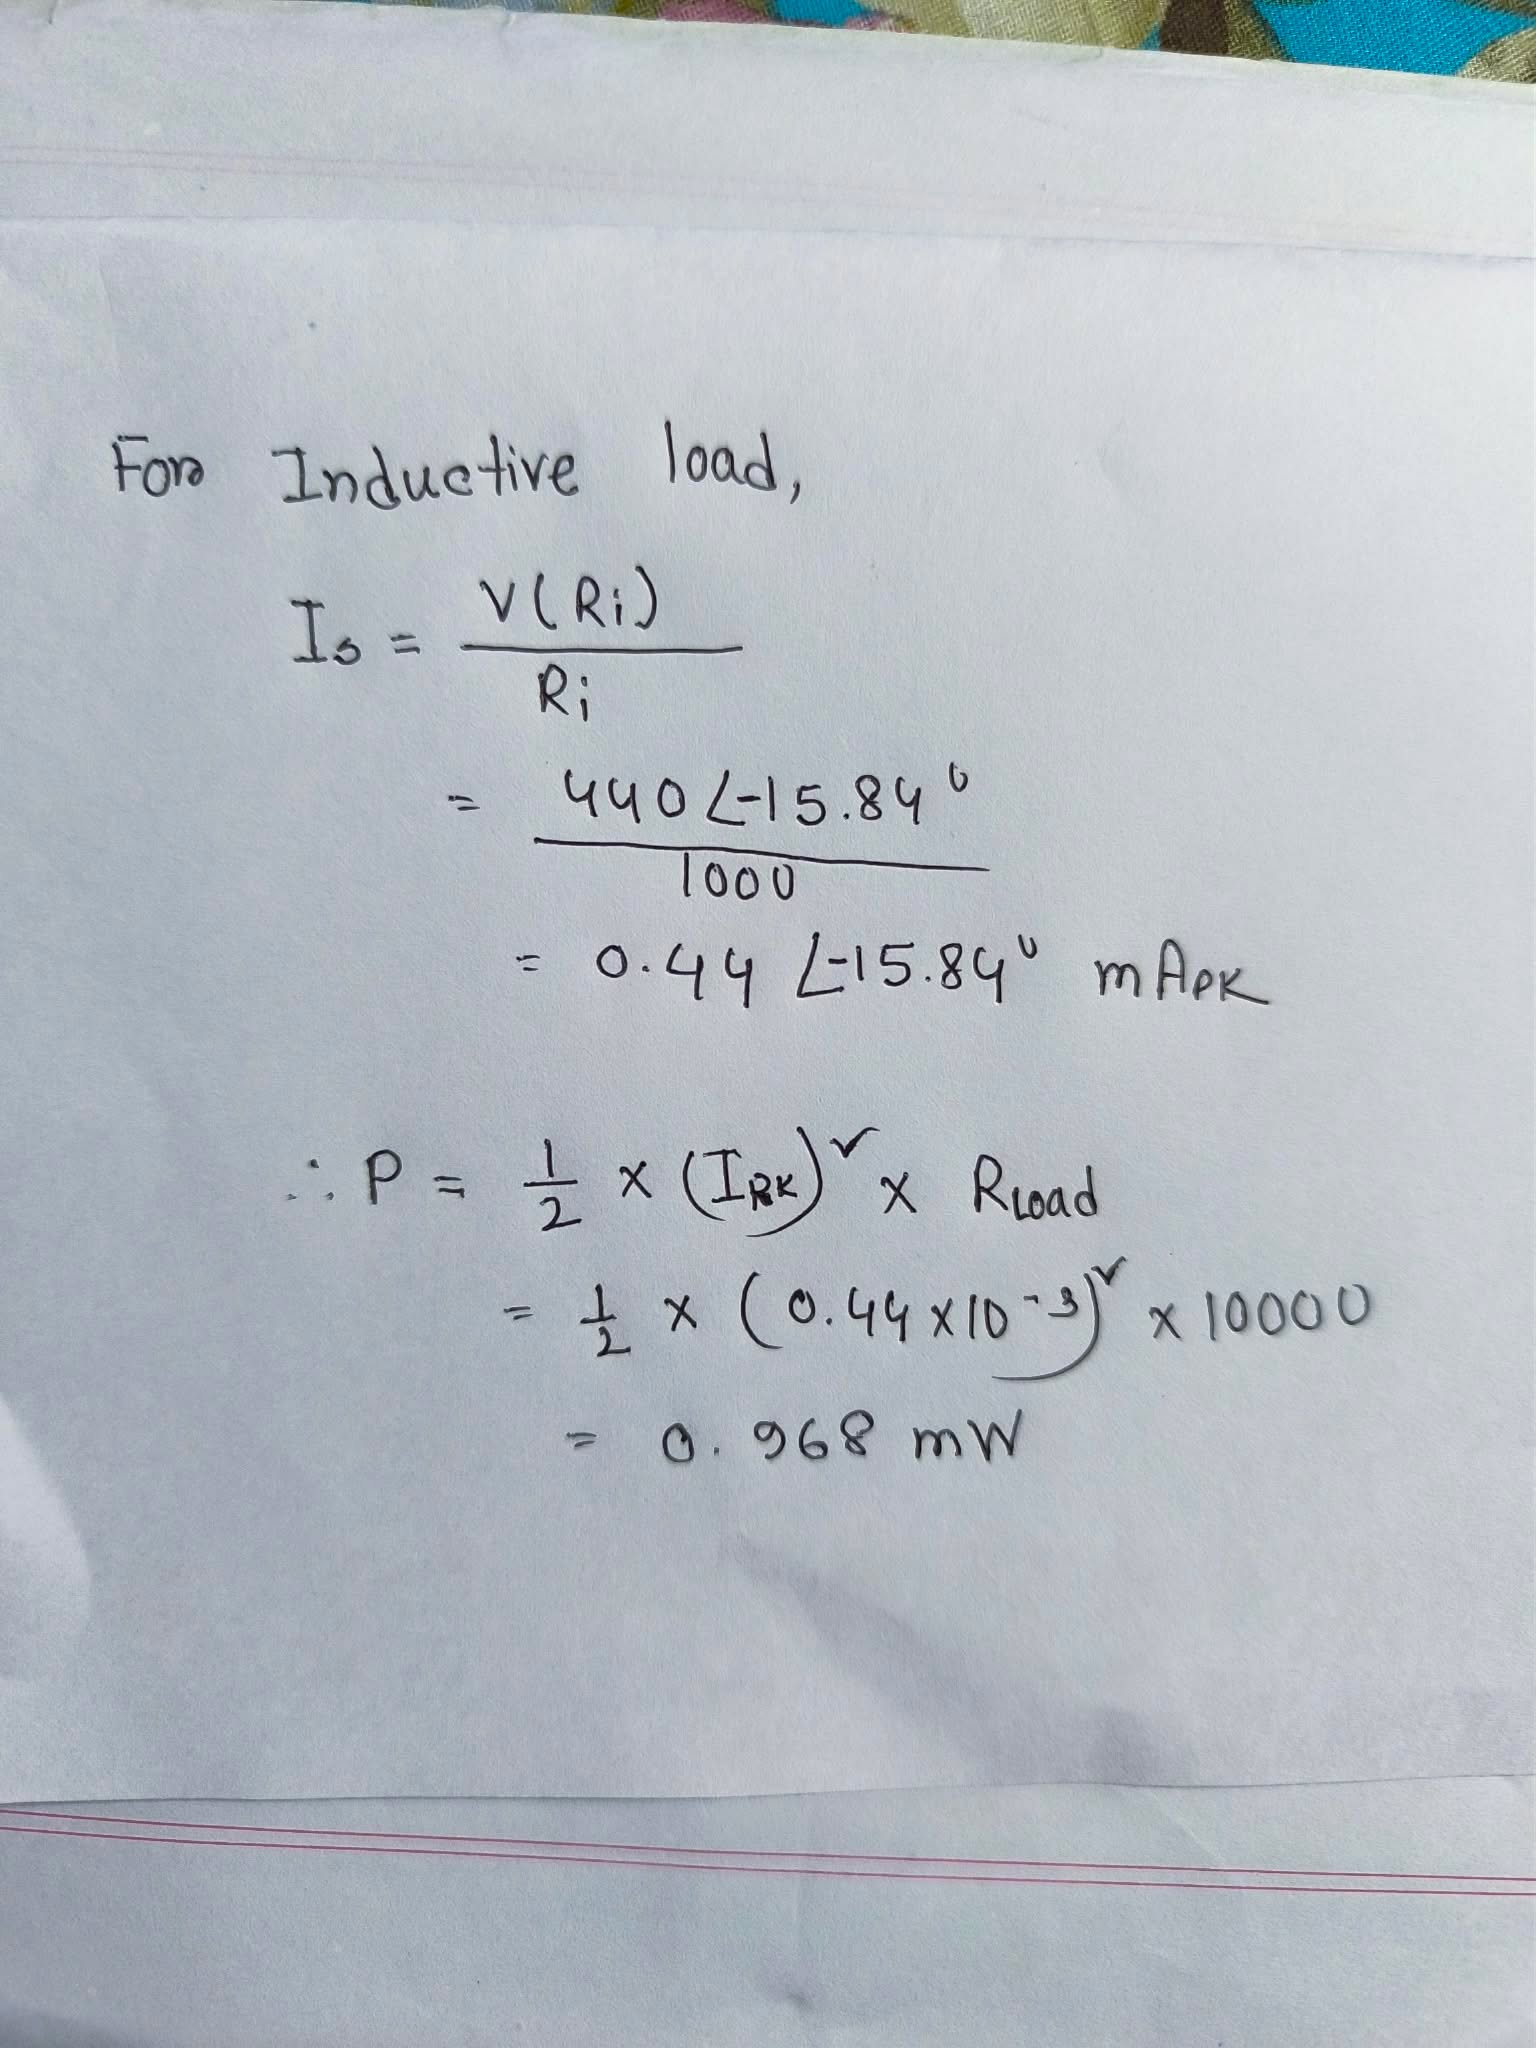 For Inductive load,
Is = V(Ri) / Ri
= 440∠-15.84° / 1000
= 0.44 ∠-15.84° mApk
∴ P = 1/2 × (Ipk)² × RLoad
= 1/2 × (0.44×10^-3)² × 10000
= 0.968 mW